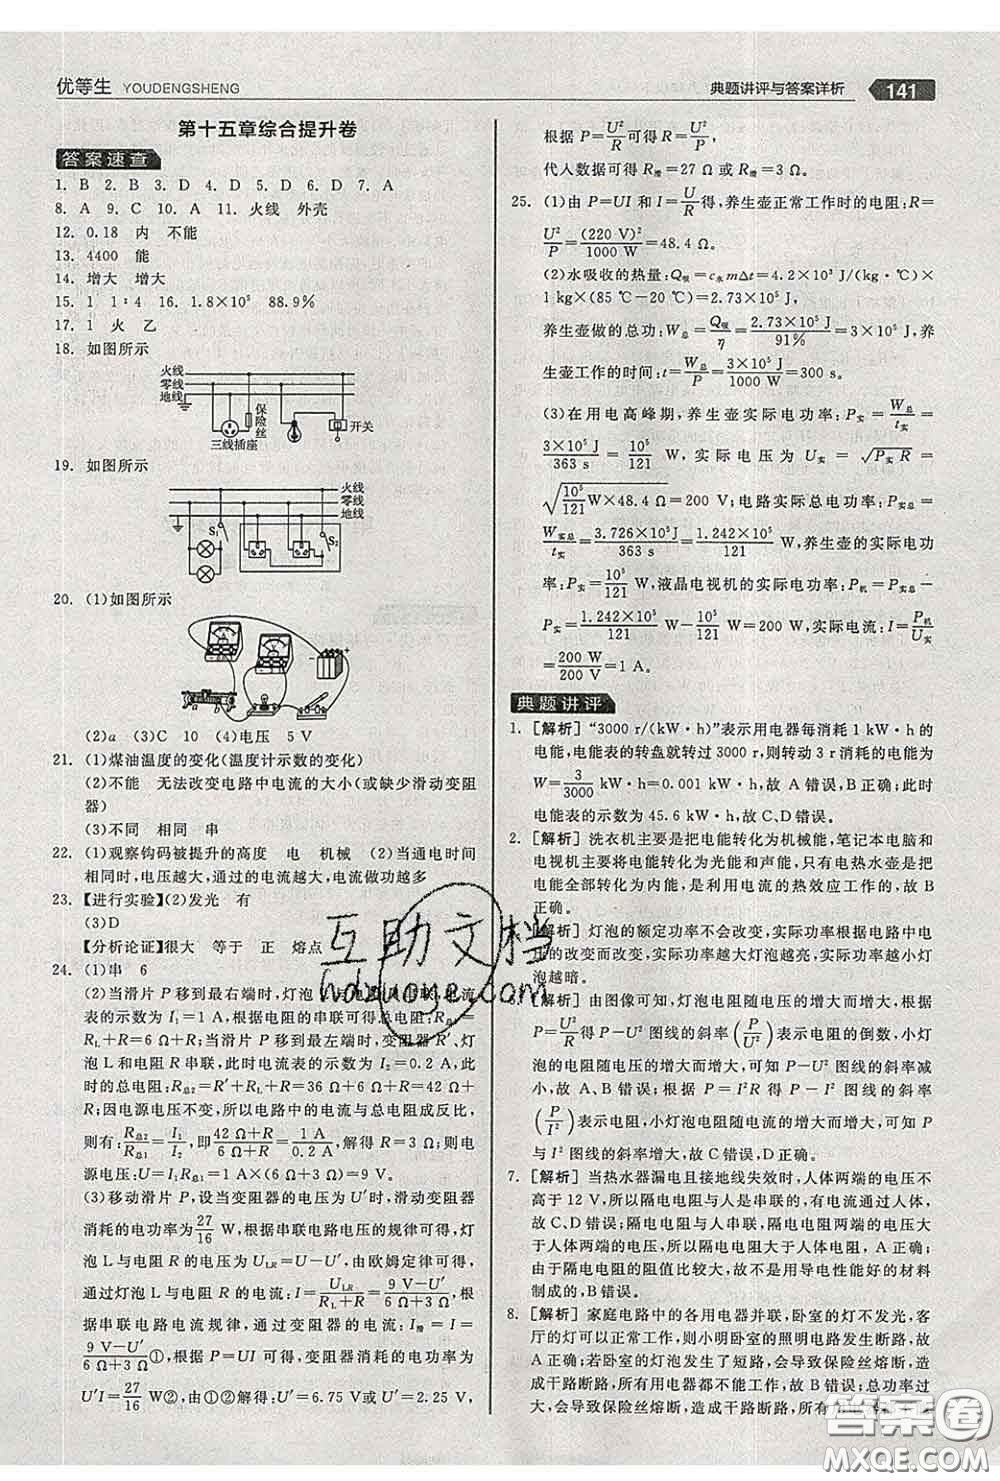 优等生 YOUDENGSHENG
典题讲评与答案详析 141
第十五章综合提升卷
答案速查
1. B 2. B 3. D 4. D 5. D 6. D 7. A
8. A 9. C 10. A 11. 火线 外壳
12. 0.18 内 不能
13. 4400 能
14. 增大 增大
15. 1 1∶4 16. 1.8×10⁵ 88.9%
17. 1 火 乙
18. 如图所示
火线
零线
地线
保险丝
三线插座
开关
19. 如图所示
火线
零线
地线
S₁
S₂
20. (1)如图所示
a b
(2)a (3)C 10 (4)电压 5 V
21. (1)煤油温度的变化(温度计示数的变化)
(2)不能 无法改变电路中电流的大小(或缺少滑动变阻
器)
(3)不同 相同 串
22. (1)观察钩码被提升的高度 电 机械 (2)当通电时间
相同时,电压越大,通过的电流越大,电流做功越多
23. 【进行实验】(2)发光 有
(3)D
【分析论证】很大 等于 正 熔点
24. (1)串 6
(2)当滑片 P 移到最右端时,灯泡
表的示数为 I₁=1 A,根据电阻的串联可得总电阻:R总1=
R_L+R=6 Ω+R;当滑片 P 移到最左端时,变阻器 R′、灯
泡 L 和电阻 R 串联,此时电流表的示数为 I₂=0.2 A,此
时的总电阻:R总2=R′+R_L+R=36 Ω+6 Ω+R=42 Ω+
R;因电源电压不变,所以电路中的电流与总电阻成反比,
则有:R总2/R总1=I₁/I₂,即(42 Ω+R)/(6 Ω+R)=1 A/0.2 A,解得:R=3 Ω;则电
源电压:U=I₁R总1=1 A×(6 Ω+3 Ω)=9 V。
(3)移动滑片 P,设当变阻器的电压为 U′时,滑动变阻器
消耗的电功率为27/16 W,根据串联电路电压的规律可得,灯
泡 L 与电阻 R 的电压:U_LR=U−U′,由欧姆定律可得,
通过灯泡 L 与电阻 R 的电流:I=U_LR/(R_L+R)=(9 V−U′)/(6 Ω+3 Ω),根
据串联电路电流规律,通过变阻器的电流:I滑=I=
(9 V−U′)/(6 Ω+3 Ω)①,根据 P=UI 可得,变阻器消耗的电功率为
U′I=27/16 W②,由①②解得:U′=6.75 V或U′=2.25 V,
根据 P=U²/R 可得 R=U²/P,
代人数据可得 R滑=27 Ω 或 R滑=3 Ω。
25. (1)由 P=UI 和 I=U/R得,养生壶正常工作时的电阻:R=
U²/P=(220 V)²/1000 W=48.4 Ω。
(2)水吸收的热量:Q吸=c水mΔt=4.2×10³ J/(kg·℃)×
1 kg×(85 ℃−20 ℃)=2.73×10⁵ J,
养生壶做的总功:W总=Q吸/η=2.73×10⁵ J/91%=3×10⁵ J,养
生壶工作的时间:t=W总/P=3×10⁵ J/1000 W=300 s。
(3)在用电高峰期,养生壶实际电功率:P实=W总/t实=
3×10⁵ J/363 s=10⁵/121 W,实际电压为 U实=√(P实R)=
√(10⁵/121 W×48.4 Ω)=200 V;电路实际总电功率:P实总=
W实总/t实=3.726×10⁵ J/363 s=1.242×10⁵/121 W,养生壶的实际电功
率:P实=10⁵/121 W,液晶电视机的实际电功率:P机=P实总−
P实=1.242×10⁵/121 W−10⁵/121 W=200 W,实际电流:I=P机/U实
=200 W/200 V=1 A。
典题讲评
1. [解析] “3000 r/(kW·h)”表示用电器每消耗 1 kW·h 的
电能,电能表的转盘就转过 3000 r,则转动 3 r消耗的电能为
W=3/3000 kW·h=0.001 kW·h,故 A 错误,B 正确;此时
电能表的示数为 45.6 kW·h,故 C、D 错误。
2. [解析] 洗衣机主要是把电能转化为机械能,笔记本电脑和
电视机主要是把电能转化为光能和声能,只有电热水壶是把
电能主要转化为内能,是利用电流的热效应工作的,故 B
正确。
[解析] 灯泡的额定功率不会改变,根据串联电路中电压
的变化而变化,实际功率越大灯泡越亮,实际功率越小灯
泡越暗。
[解析] 由图像可知,灯泡电阻随电压的增大而增大,根据
P=U²/R得 P−U² 图线的斜率(P/U²)表示电阻的倒数,小灯
泡的电阻随电压的增大而增大,则 P−U² 图线的斜率减
小,故 A、B 错误;根据 P=I²R 得 P−I² 图线的斜率
(P/I²)表示电阻,小灯泡电阻随电流的增大而增大,则 P
与 I² 图线的斜率增大,故 C 错误,D 正确。
7. [解析] 当热水器漏电且接地线失效时,人体两端的电压不
高于 12 V,所以隔电电阻与人是串联的,有电流通过人体,
故 C、D 错误;隔电电阻与人串联,隔电电阻两端的电压大于
人体两端的电压,所以隔电电阻的阻值大于人体电阻,A 正确;
由于隔电电阻的阻值比较大,故不是用导电性能好的材料
制成的,B 错误。
8. [解析] 家庭电路中的各用电器并联,卧室的灯不发光,客
厅的灯可以正常工作,则小明卧室的照明电路发生断路,故 A
正确;若卧室的灯泡发生了短路,会导致保险丝熔断,造成
干路断路,所有用电器都不能工作,故 B 错误;
会导致保险丝熔断,造成干路断路,
互助文档
hdzuoye.com
答案圈
MXQE.COM